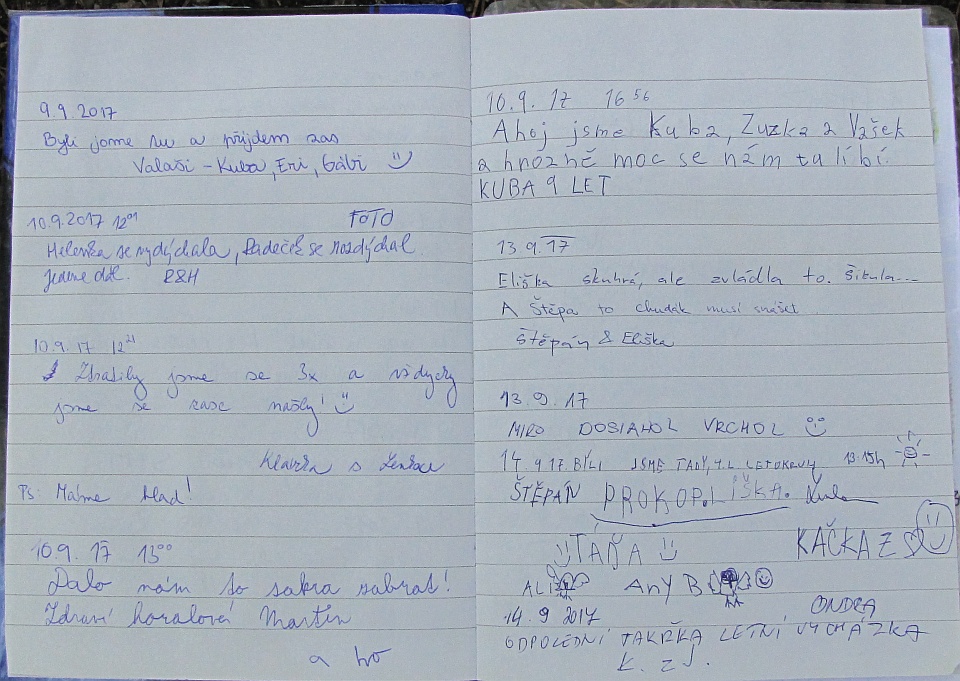 9.9.2017
Byli jsme tu a přijdem zas
Valaši - Kuba, Eri, Gábi
10.9.2017 12⁰¹ FOTO
Helenka se vydýchala, Radeček se nadýchal
jedeme dál. R&H
10.9.17 12²¹
Ztratily jsme se 3x a vždycky
jsme se zase našly!
Klárka s Lenkou
Ps: Máme hlad!
10.9.17 13⁰⁰
Dalo nám to sakra zabrat!
Zdraví horalové Martin
a Ivo
10.9.17 16⁵⁶
Ahoj jsme Kuba, Zuzka a Vašek
a hrozně moc se nám tu líbí.
KUBA 9 LET
13.9.17
Eliška skuhrá, ale zvládla to. Šikula...
A Štěpa to chudák musí snášet
Štěpán & Eliška
13.9.17
MIRO DOSIAHOL VRCHOL
14.9.17 BYLI JSME TADY, Z LETOHRADU 13:15h
ŠTĚPÁN PROKOP. LIŠKA.
TÁŇA KAČKA Z
ALI ANY B
ONDRA
14.9 2017
ODPOLEDNÍ TAKŘKA LETNÍ VYCHÁZKA
K. z J.